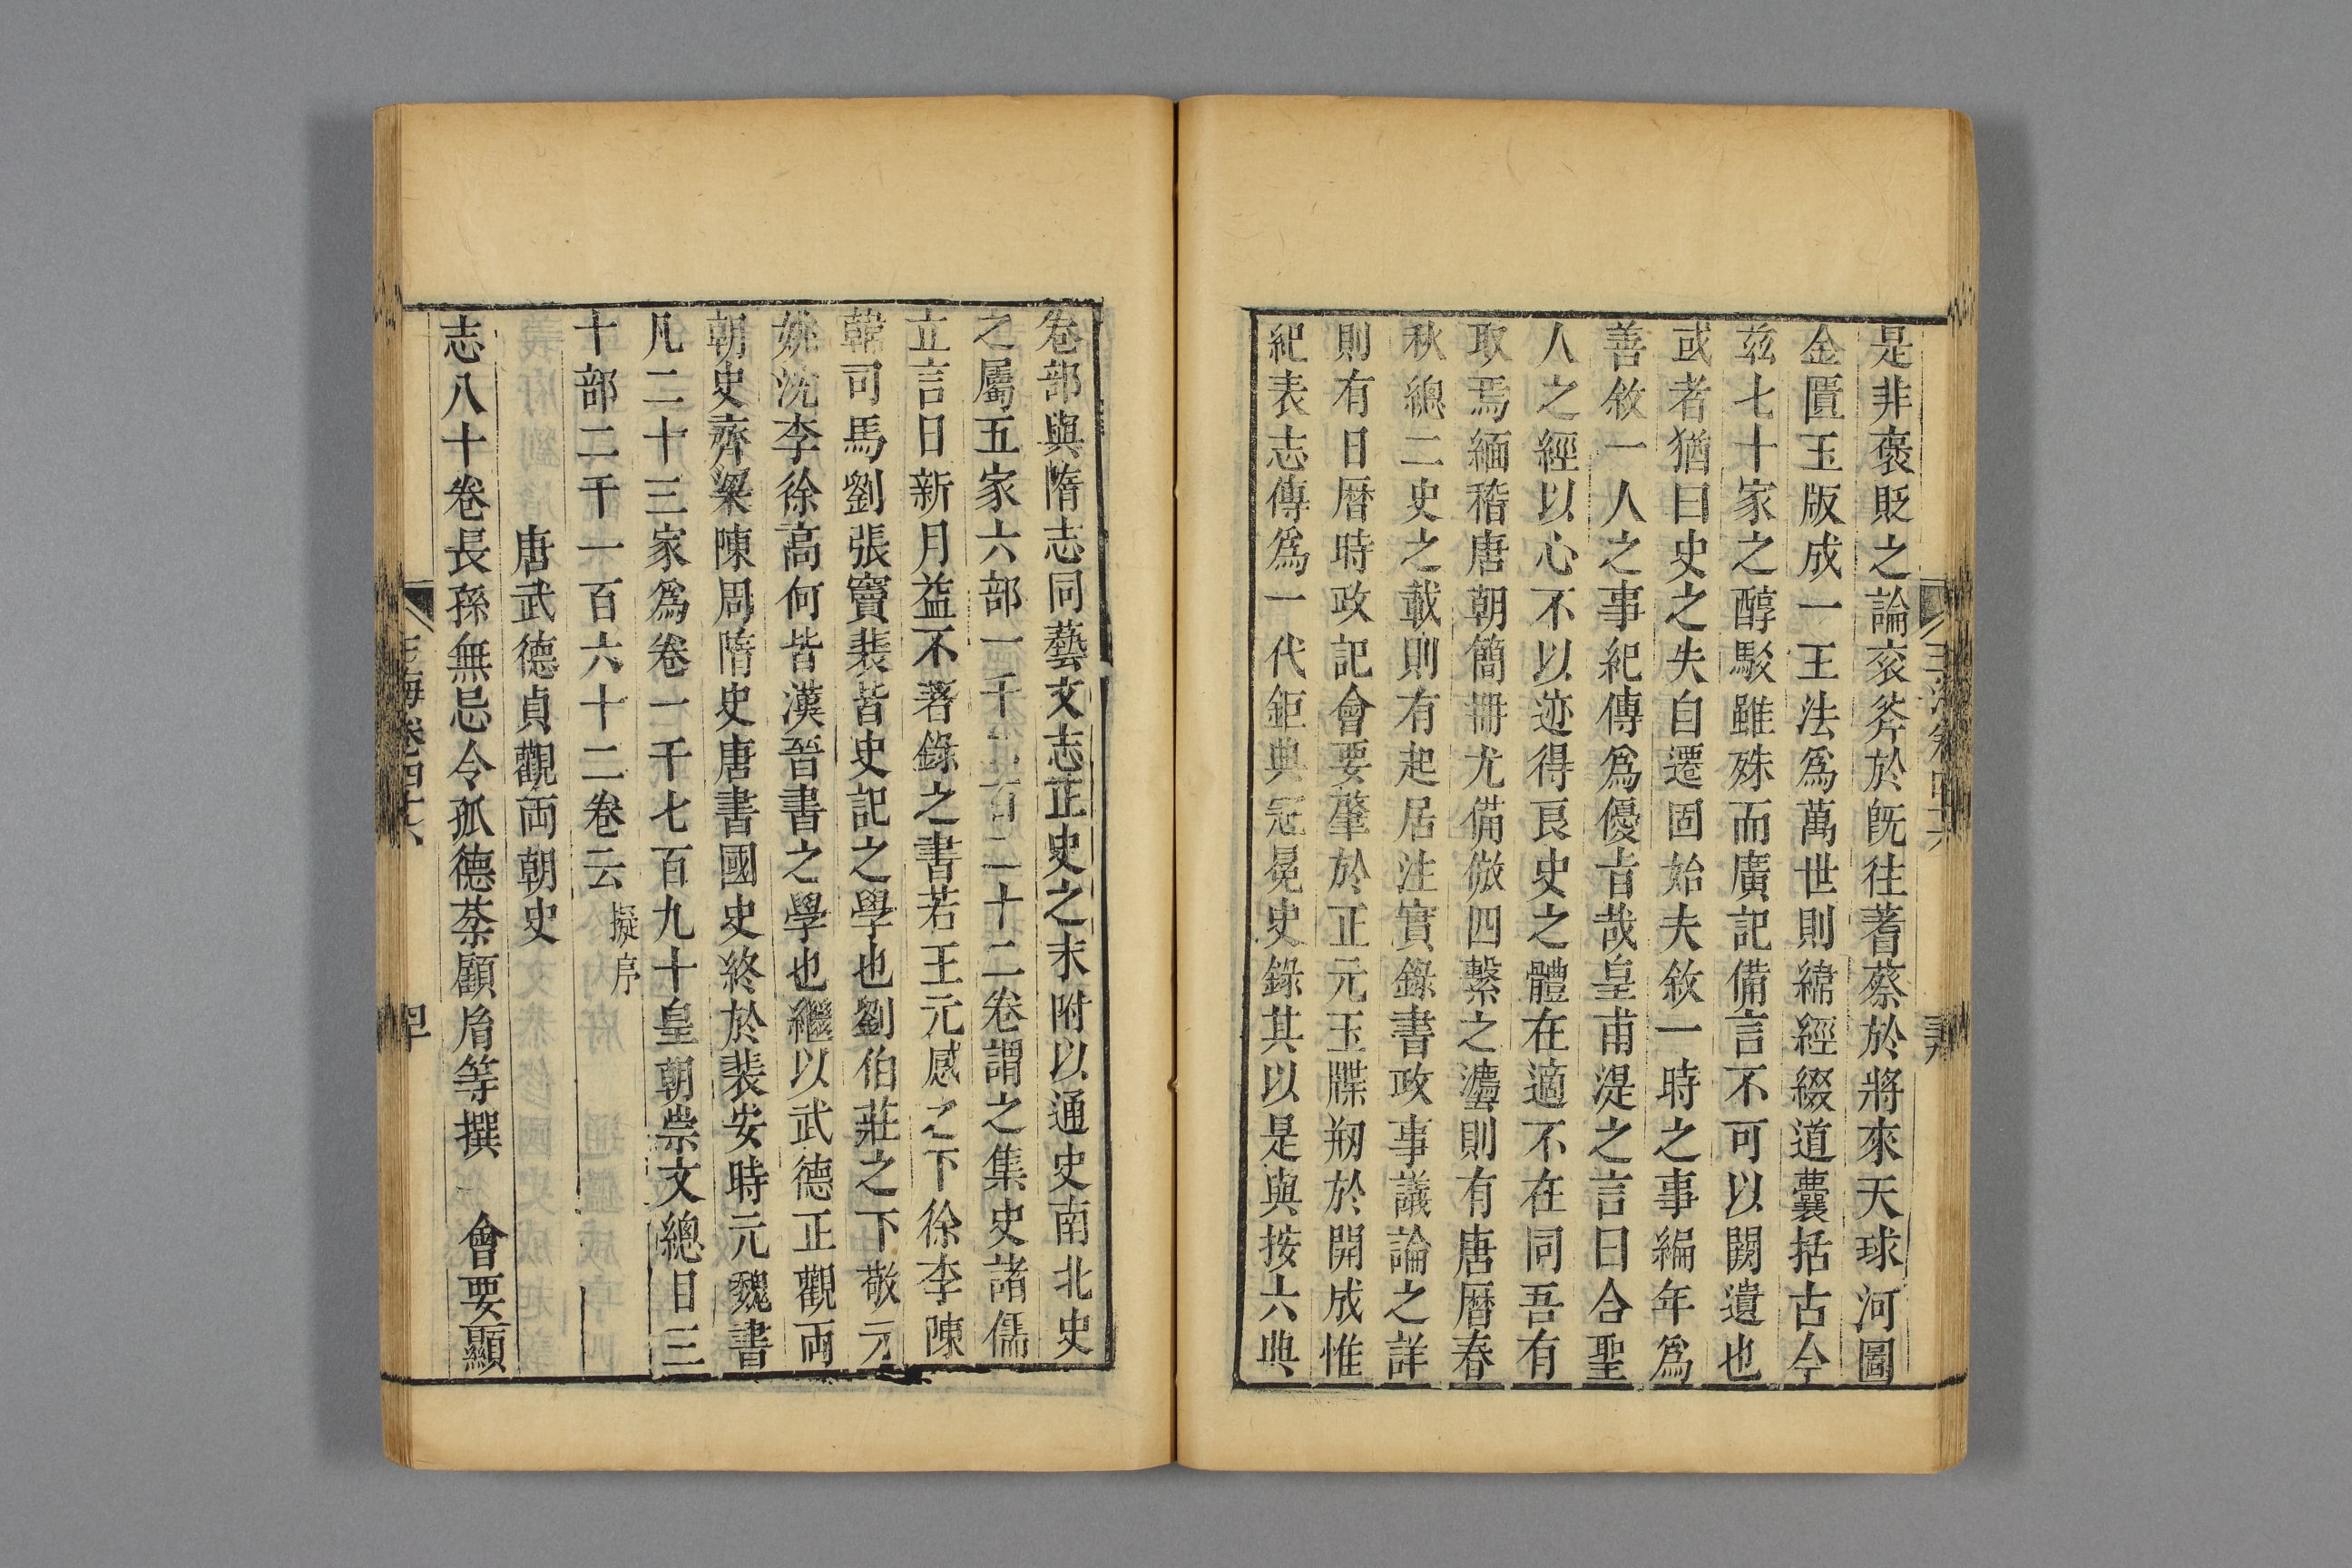 是非褒貶之論衮斧於旣往蓍蔡於將來天球河圖
金匱玉版成一王法爲萬世則緯經綴道囊括古今
玆七十家之醇駁雖殊而廣記備言不可以闕遺也
或者猶曰史之失自遷固始夫敘一時之事編年爲
善敘一人之事紀傳爲優旹哉皇甫湜之言曰合聖
人之經以心不以迹得良史之體在適不在同吾有
取焉緬稽唐朝簡冊尤備倣四繫之灋則有唐曆春
秋總二史之載則有起居注實錄書政事議論之詳
則有日曆時政記會要肇於正元玉牒剏於開成惟
紀表志傳爲一代鉅典冠冕史錄其以是與按六典
卷部與隋志同藝文志正史之末附以通史南北史
之屬五家六部一千二百二十二卷謂之集史諸儒
立言日新月益不著錄之書若王元感之下徐李陳
韓司馬劉張竇裴皆史記之學也劉伯莊之下敬元
姚沈李徐高何皆漢晉書之學也繼以武德正觀兩
朝史齊梁陳周隋史唐書國史終於裴安時元魏書
凡二十三家爲卷一千七百九十皇朝崇文總目三
十部二千一百六十二卷云 擬序
唐武德貞觀兩朝史
志八十卷長孫無忌令狐德棻顧胤等撰 會要顯
玉海卷四十六